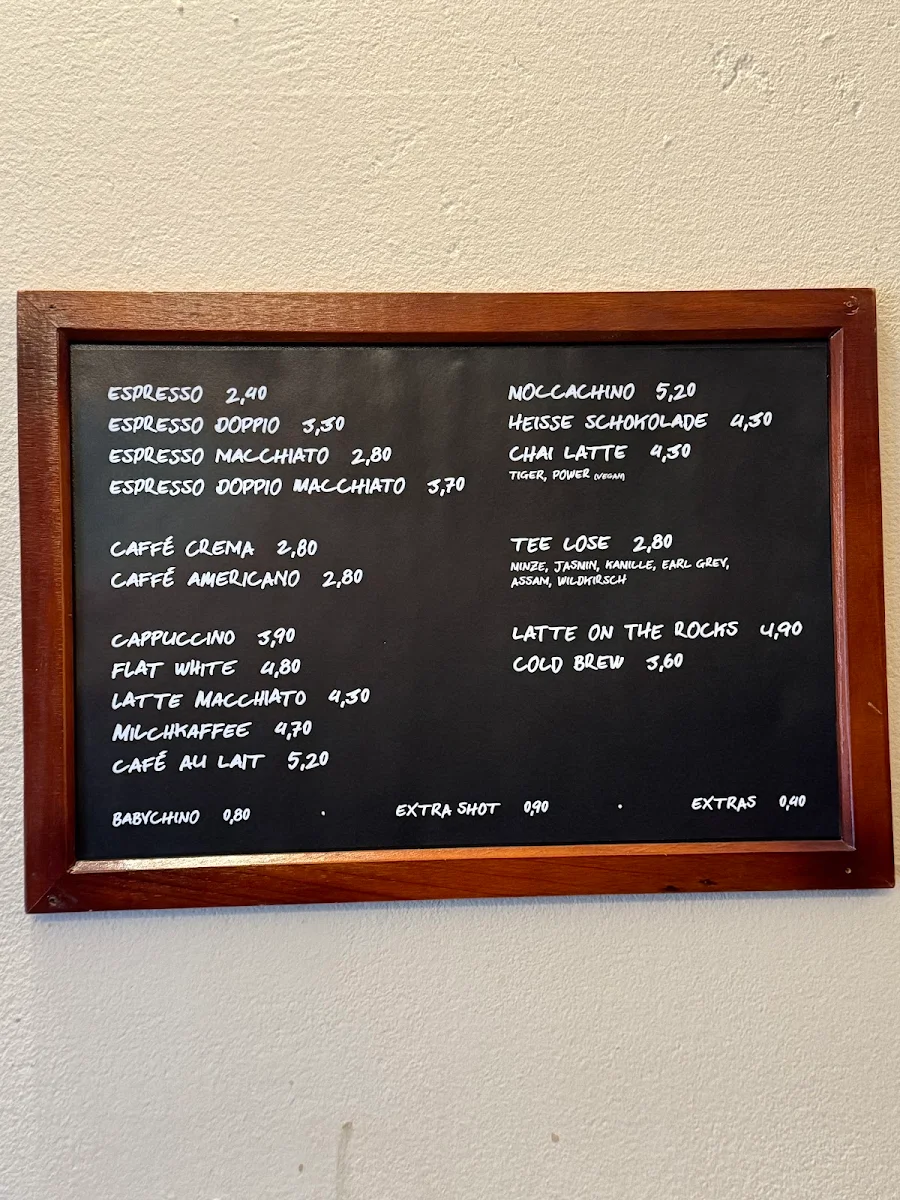 ESPRESSO 2,40
ESPRESSO DOPPIO 3,30
ESPRESSO MACCHIATO 2,80
ESPRESSO DOPPIO MACCHIATO 3,70
CAFFÉ CREMA 2,80
CAFFÉ AMERICANO 2,80
CAPPUCCINO 3,90
FLAT WHITE 4,80
LATTE MACCHIATO 4,30
MILCHKAFFEE 4,70
CAFÉ AU LAIT 5,20
MOCCACHINO 5,20
HEISSE SCHOKOLADE 4,30
CHAI LATTE 4,30
TIGER, POWER (VEGAN)
TEE LOSE 2,80
MINZE, JASMIN, KAMILLE, EARL GREY,
ASSAM, WILDKIRSCH
LATTE ON THE ROCKS 4,90
COLD BREW 3,60
BABYCHINO 0,80 · EXTRA SHOT 0,90 · EXTRAS 0,40